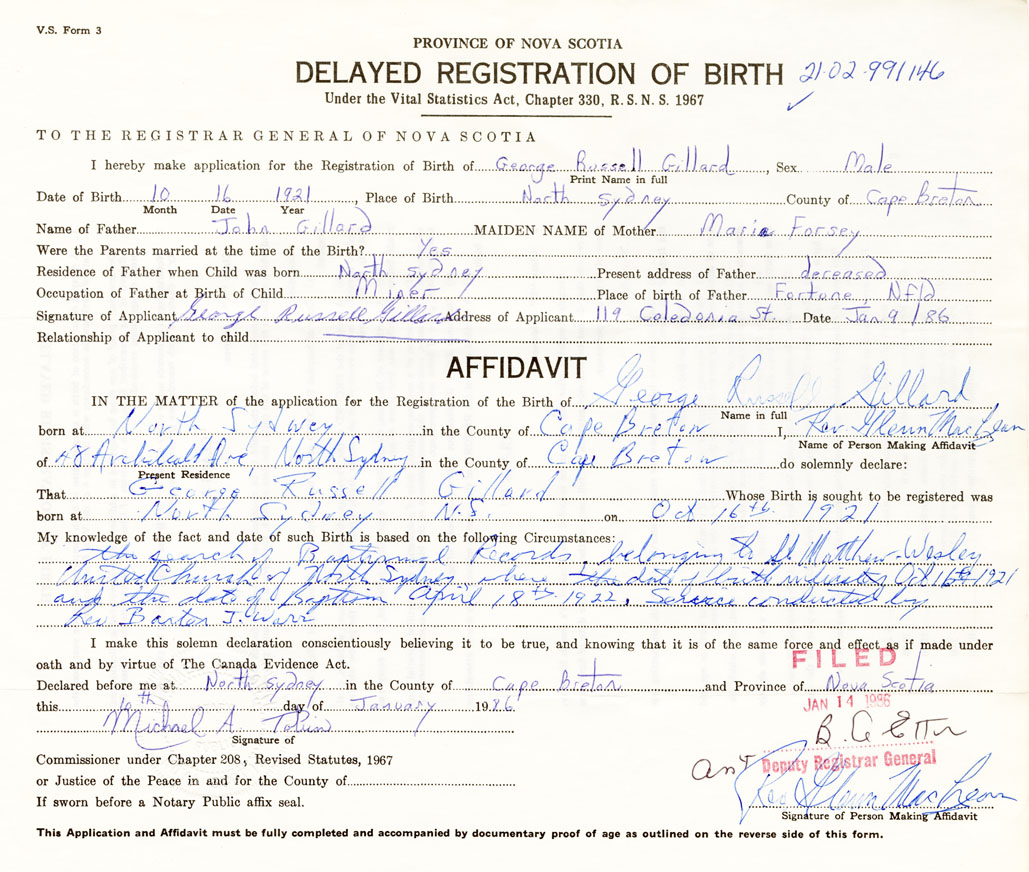 V.S. Form 3
PROVINCE OF NOVA SCOTIA
DELAYED REGISTRATION OF BIRTH 21-02-991146
Under the Vital Statistics Act, Chapter 330, R.S.N.S. 1967
TO THE REGISTRAR GENERAL OF NOVA SCOTIA
I hereby make application for the Registration of Birth of George Russell Gillard, Sex Male
Print Name in full
Date of Birth 10 16 1921, Place of Birth North Sydney County of Cape Breton
Month Date Year
Name of Father John Gillard MAIDEN NAME of Mother Maria Forsey
Were the Parents married at the time of the Birth? Yes
Residence of Father when Child was born North Sydney Present address of Father dereased
Occupation of Father at Birth of Child Miner Place of birth of Father Fortune, Nfld
Signature of Applicant George Russell Gillard Address of Applicant 119 Caledonia St. Date Jan 9/86
Relationship of Applicant to child
AFFIDAVIT
IN THE MATTER of the application for the Registration of the Birth of George Russell Gillard
Name in full
born at North Sydney in the County of Cape Breton I, Rev. Glenn MacLean
Name of Person Making Affidavit
of 48 Archibald Ave, North Sydney in the County of Cape Breton do solemnly declare:
Present Residence
That George Russell Gillard Whose Birth is sought to be registered was
born at North Sydney N.S. on Oct 16th 1921
My knowledge of the fact and date of such Birth is based on the following Circumstances:
the search of Baptismal Records, belonging to St Matthew-Wesley
United Church of North Sydney, where the date of birth indicates Oct 16th 1921
and the date of Baptism April 18th 1922. Service conducted by
Rev Barton J. Warr
I make this solemn declaration conscientiously believing it to be true, and knowing that it is of the same force and effect as if made under
oath and by virtue of The Canada Evidence Act.
FILED
Declared before me at North Sydney in the County of Cape Breton and Province of Nova Scotia
this 10th day of January 1986
JAN 14 1986
Michael A. Tobin
Signature of
B. G. Etter
Commissioner under Chapter 208, Revised Statutes, 1967
Deputy Registrar General
or Justice of the Peace in and for the County of
Rev Glenn MacLean
If sworn before a Notary Public affix seal.
Signature of Person Making Affidavit
This Application and Affidavit must be fully completed and accompanied by documentary proof of age as outlined on the reverse side of this form.